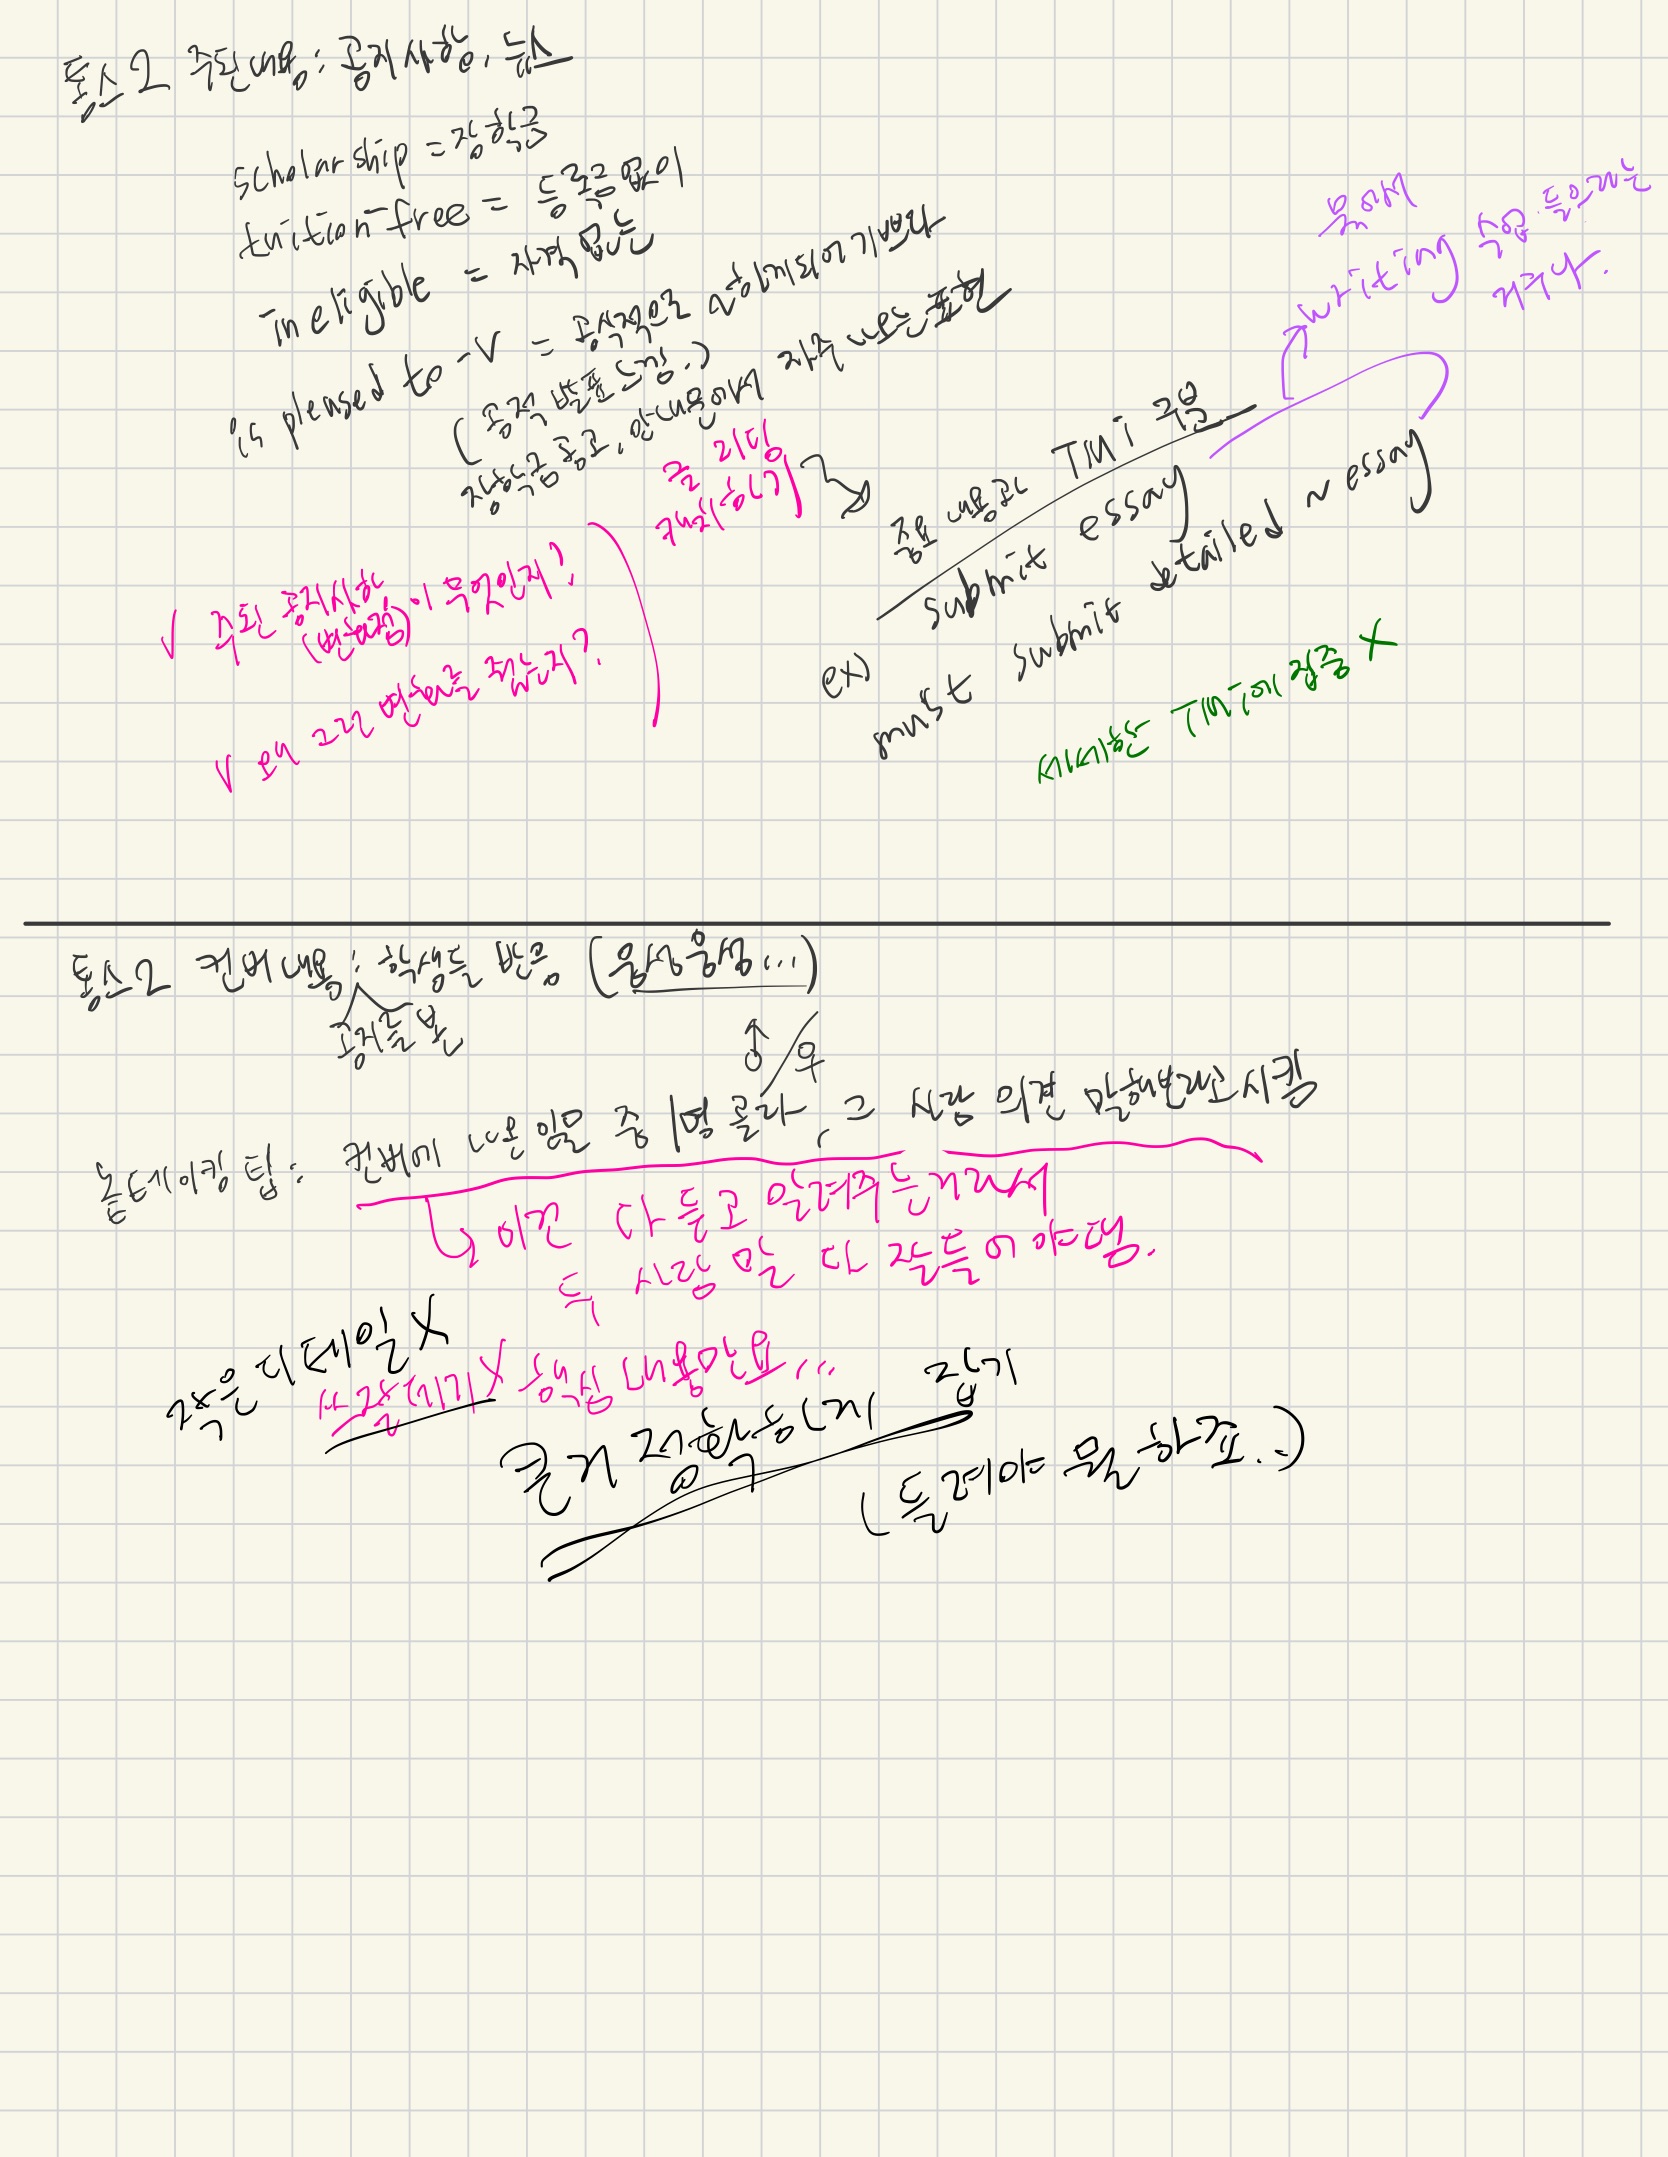 토스2 주된 내용: 공지사항, 뉴스
scholarship = 장학금
tuition-free = 등록금 없이
ineligible = 자격 없는
is pleased to -V = 공식적으로 ~하게되어 기쁘다
(공적 발표 느낌..)
장학금 공고, 안내문에서 자주 나오는 표현
글 리딩
캐치하기
✓ 주된 공지사항이 무엇인지?
(변화점)
✓ 왜 그런 변화를 줬는지?
중요 내용과 TMI 구분
submit essay
ex)
must submit detailed ~ essay
writing 수업 들으라는
거구나.
세세한 TMI에 집중 X
토스2 컨버 내용: 학생들 반응 (웅성웅성...)
공지를 본
♂/♀
노트테이킹 팁: 컨버에 나온 인물 중 1명 골라, 그 사람 의견 말해보라고시킴
이건 다 듣고 알려주는거라서
두 사람 말 다 잘들어야댐.
작은 디테일 X
쓰잘데기X 핵심 내용만요...
큰거 정확하게 잡기
(들려야 뭘 하죠..)